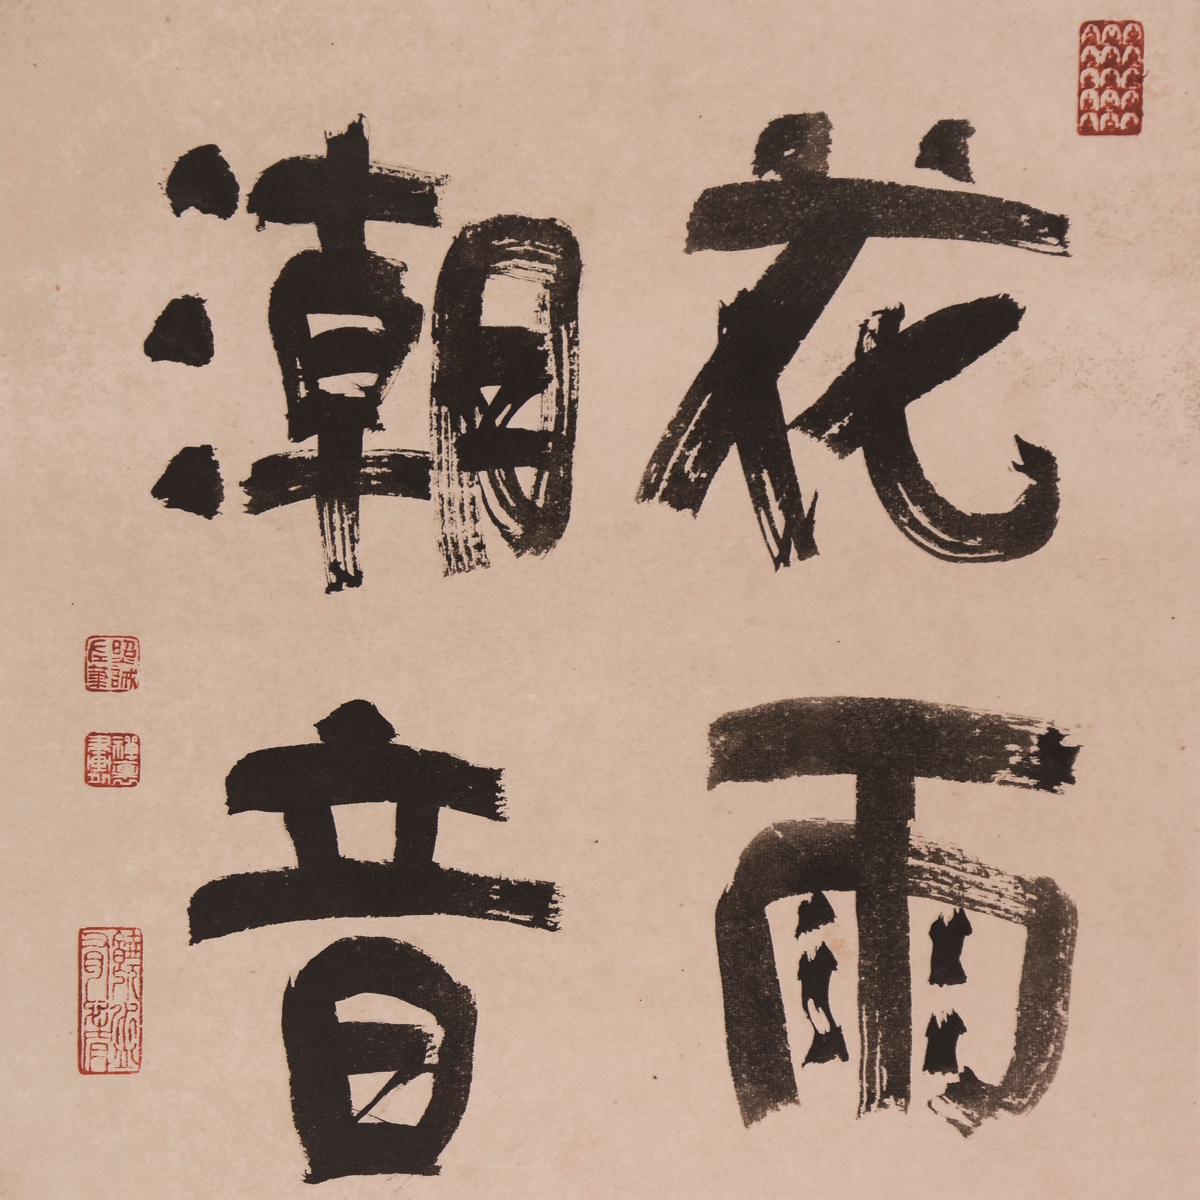 花雨
潮音